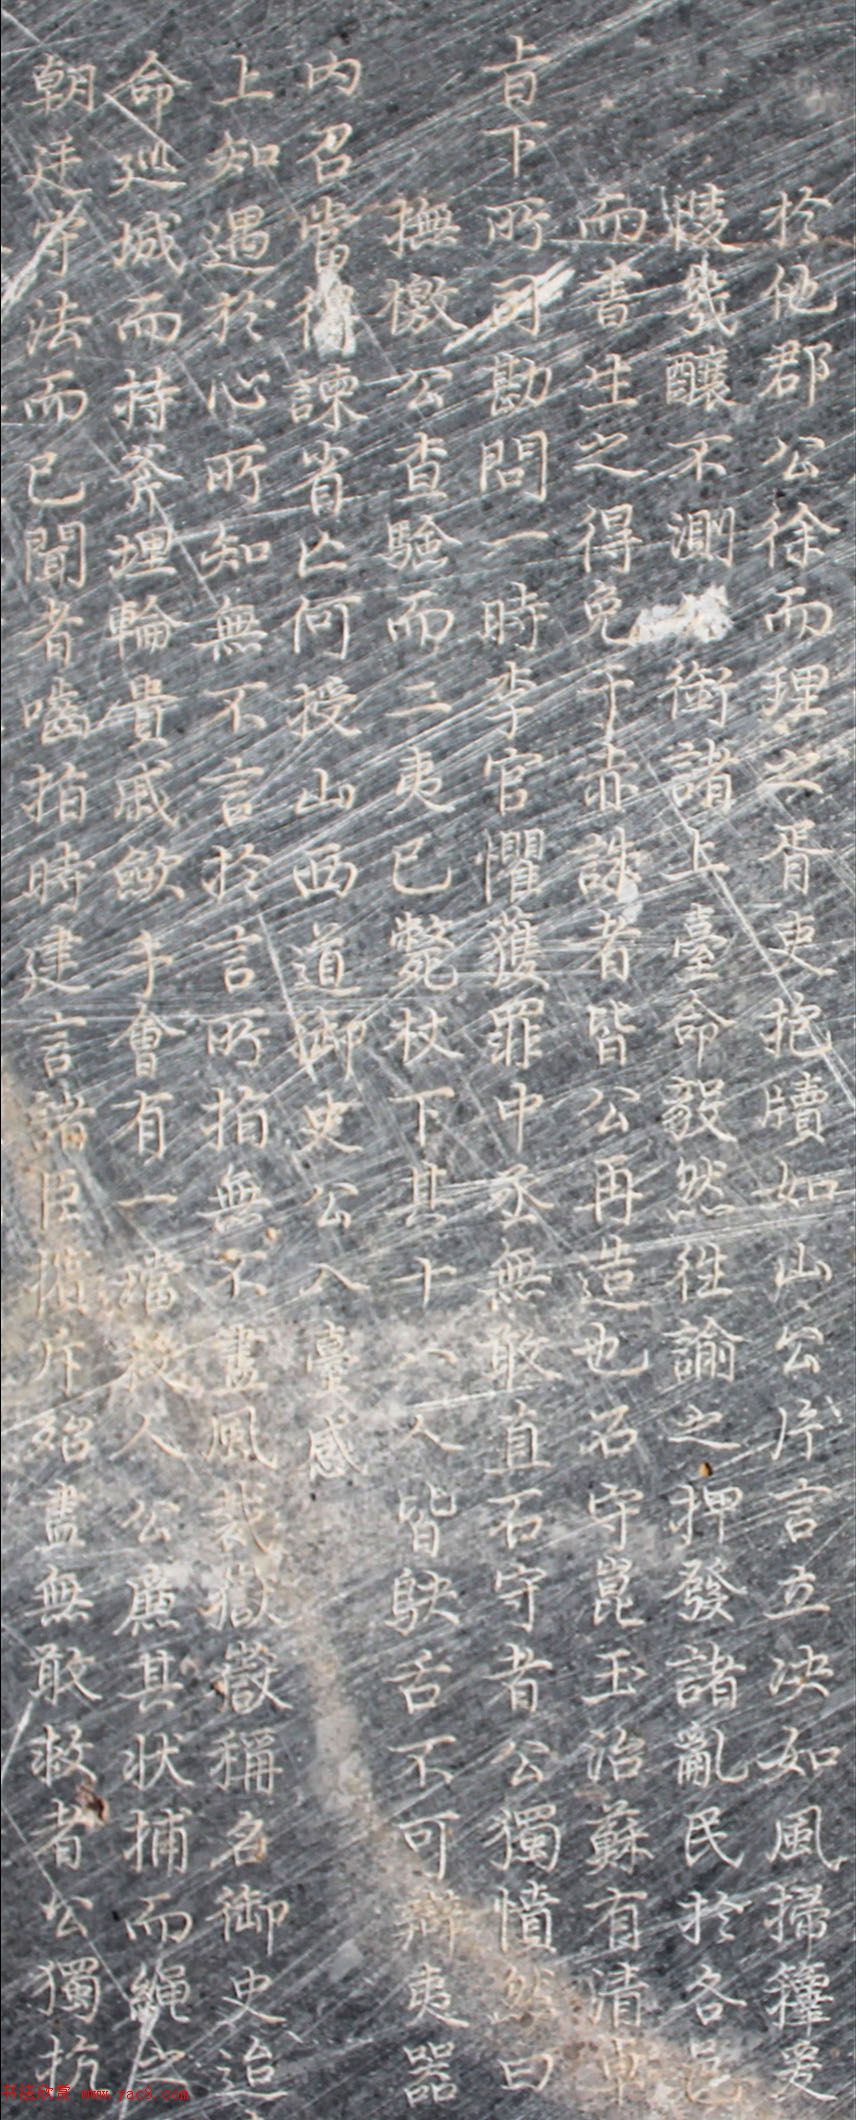 於他郡公徐而理之胥吏抱牘如山公片言立决如風掃籜爰
幾釀不測 銜諸上臺命毅然往諭之押發諸亂民於各邑
而書生之得免于赤誅者皆公再造也石守崑玉治蘇有清
旨下所司勘問一時李官懼獲罪中丞無敢直石守者公獨憤然曰
撫檄公查驗而二夷已斃杖下其十八人皆鴃舌不可辯夷器
內召當得諫省亡何授山西道御史公入臺感
上知遇於心所知無不言於言所指無不盡風裁嶽嶽稱名御史迨
命巡城而持斧埋輪貴戚歛手會有一璫殺人公廉其状捕而繩之
朝廷守法而已聞者嚙指時建言諸臣擯斥殆盡無敢救者公獨抗
www.yac8.com